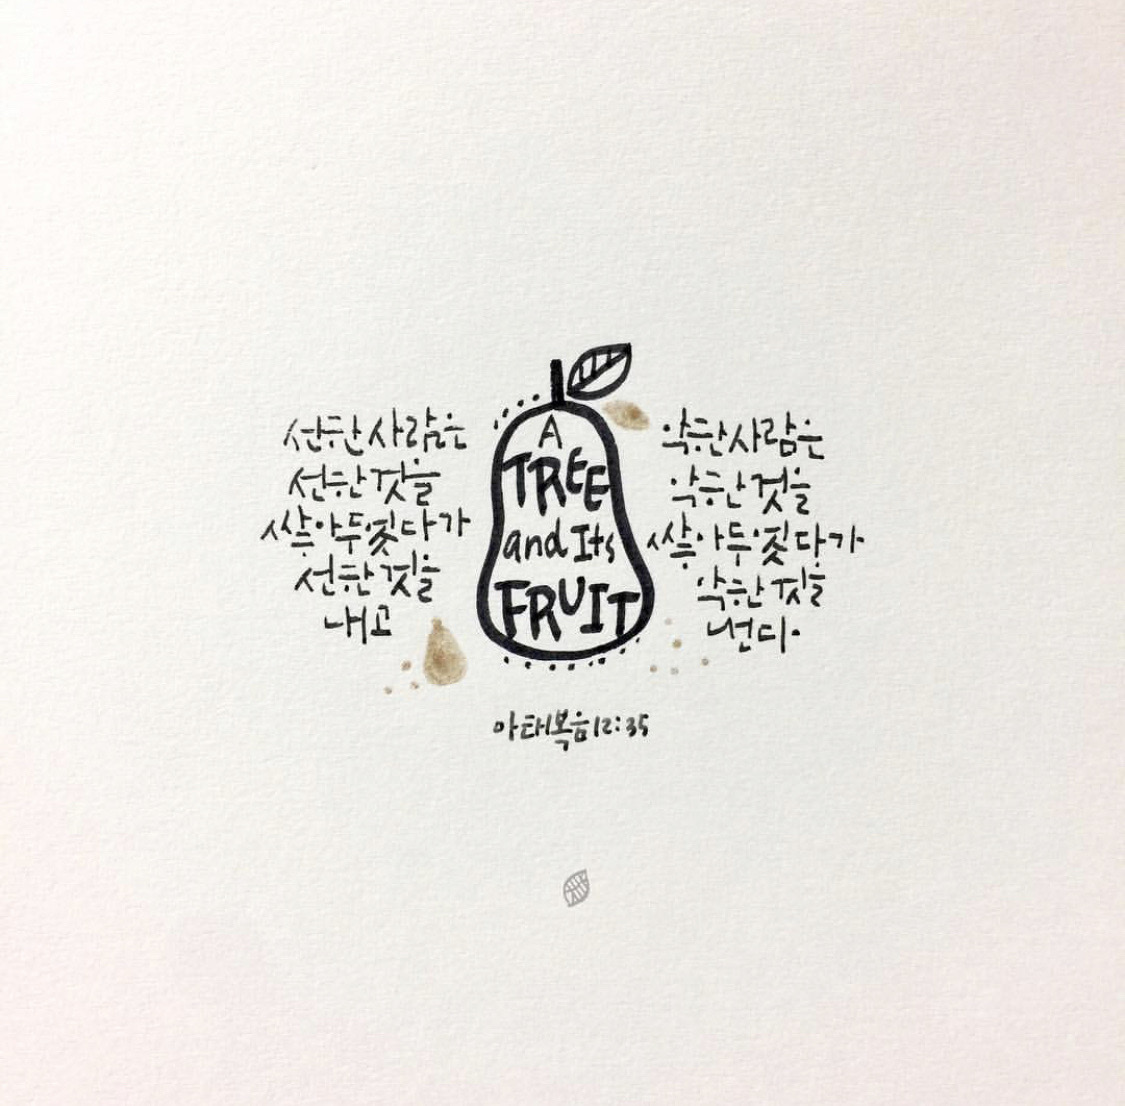 선한 사람은
선한 것을
쌓아두었다가
선한 것을
내고
A
TREE
and Its
FRUIT
악한 사람은
악한 것을
쌓아두었다가
악한 것을
낸다.
마태복음 12:35